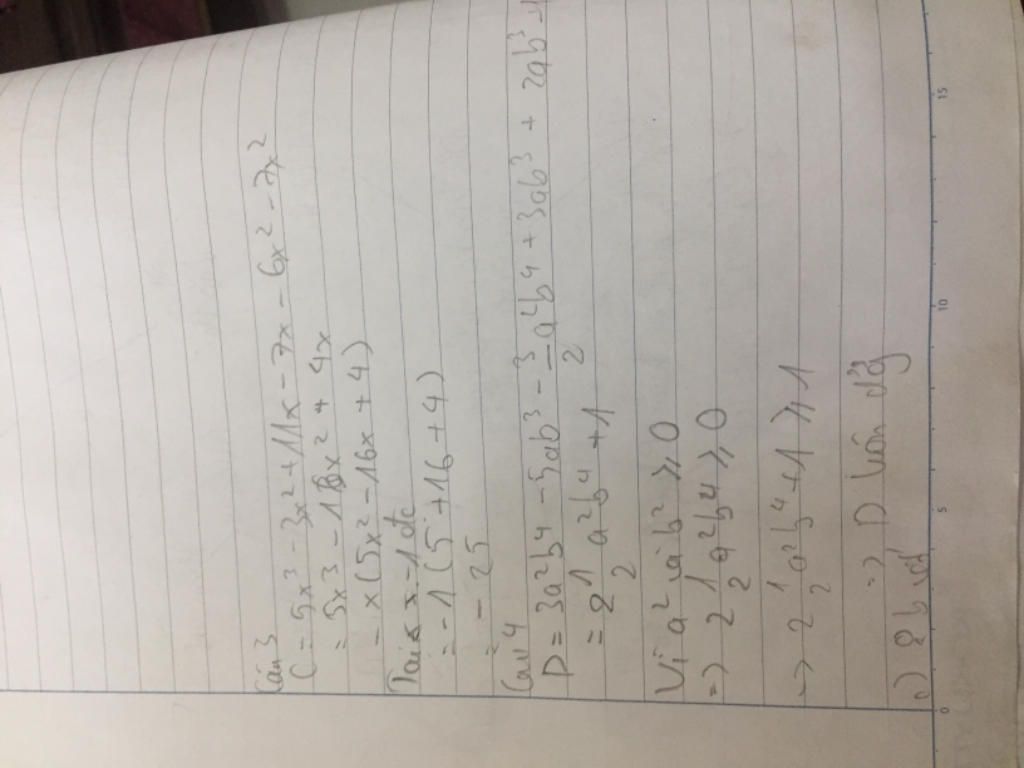 Câu 3
C = 5x³ - 3x² + 11x - 7x - 6x² - 7x²
= 5x³ - 16x² + 4x
= x(5x² - 16x + 4)
Tại x = -1 ta
= -1(5 + 16 + 4)
= -25
Câu 4
D = 3a²b⁴ - 5ab³ - 3/2 a²b⁴ + 3ab³ + 2ab³
= 2 1/2 a²b⁴ + 1
Vì a² và b² ≥ 0
=> 2 1/2 a²b⁴ ≥ 0
=> 2 1/2 a²b⁴ + 1 ≥ 1
=> D luôn